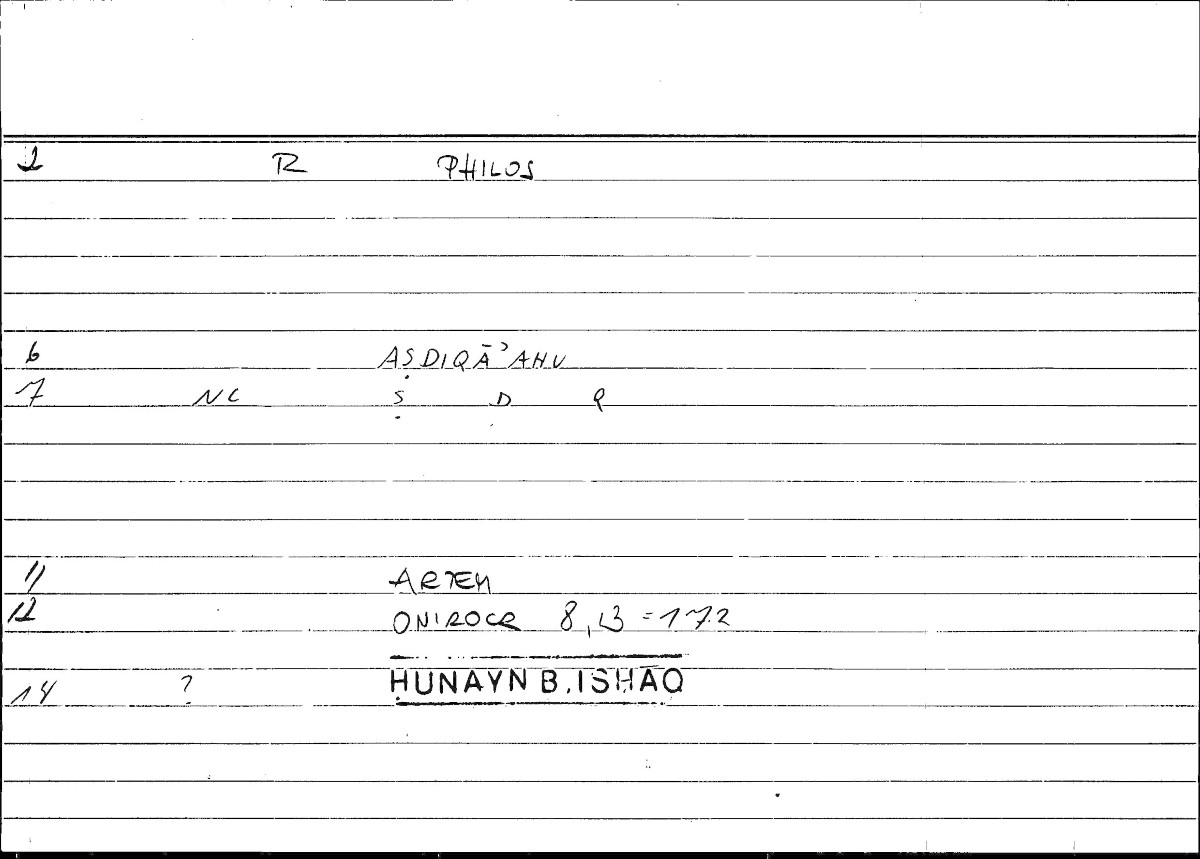 1 R PHILOS
6 AṢDIQĀʾAHU
7 NC Ṣ D Q
11 ARTEM
12 ONIROCR 8,23 = 17.2
14 ? ḤUNAYN B. ISḤĀQ